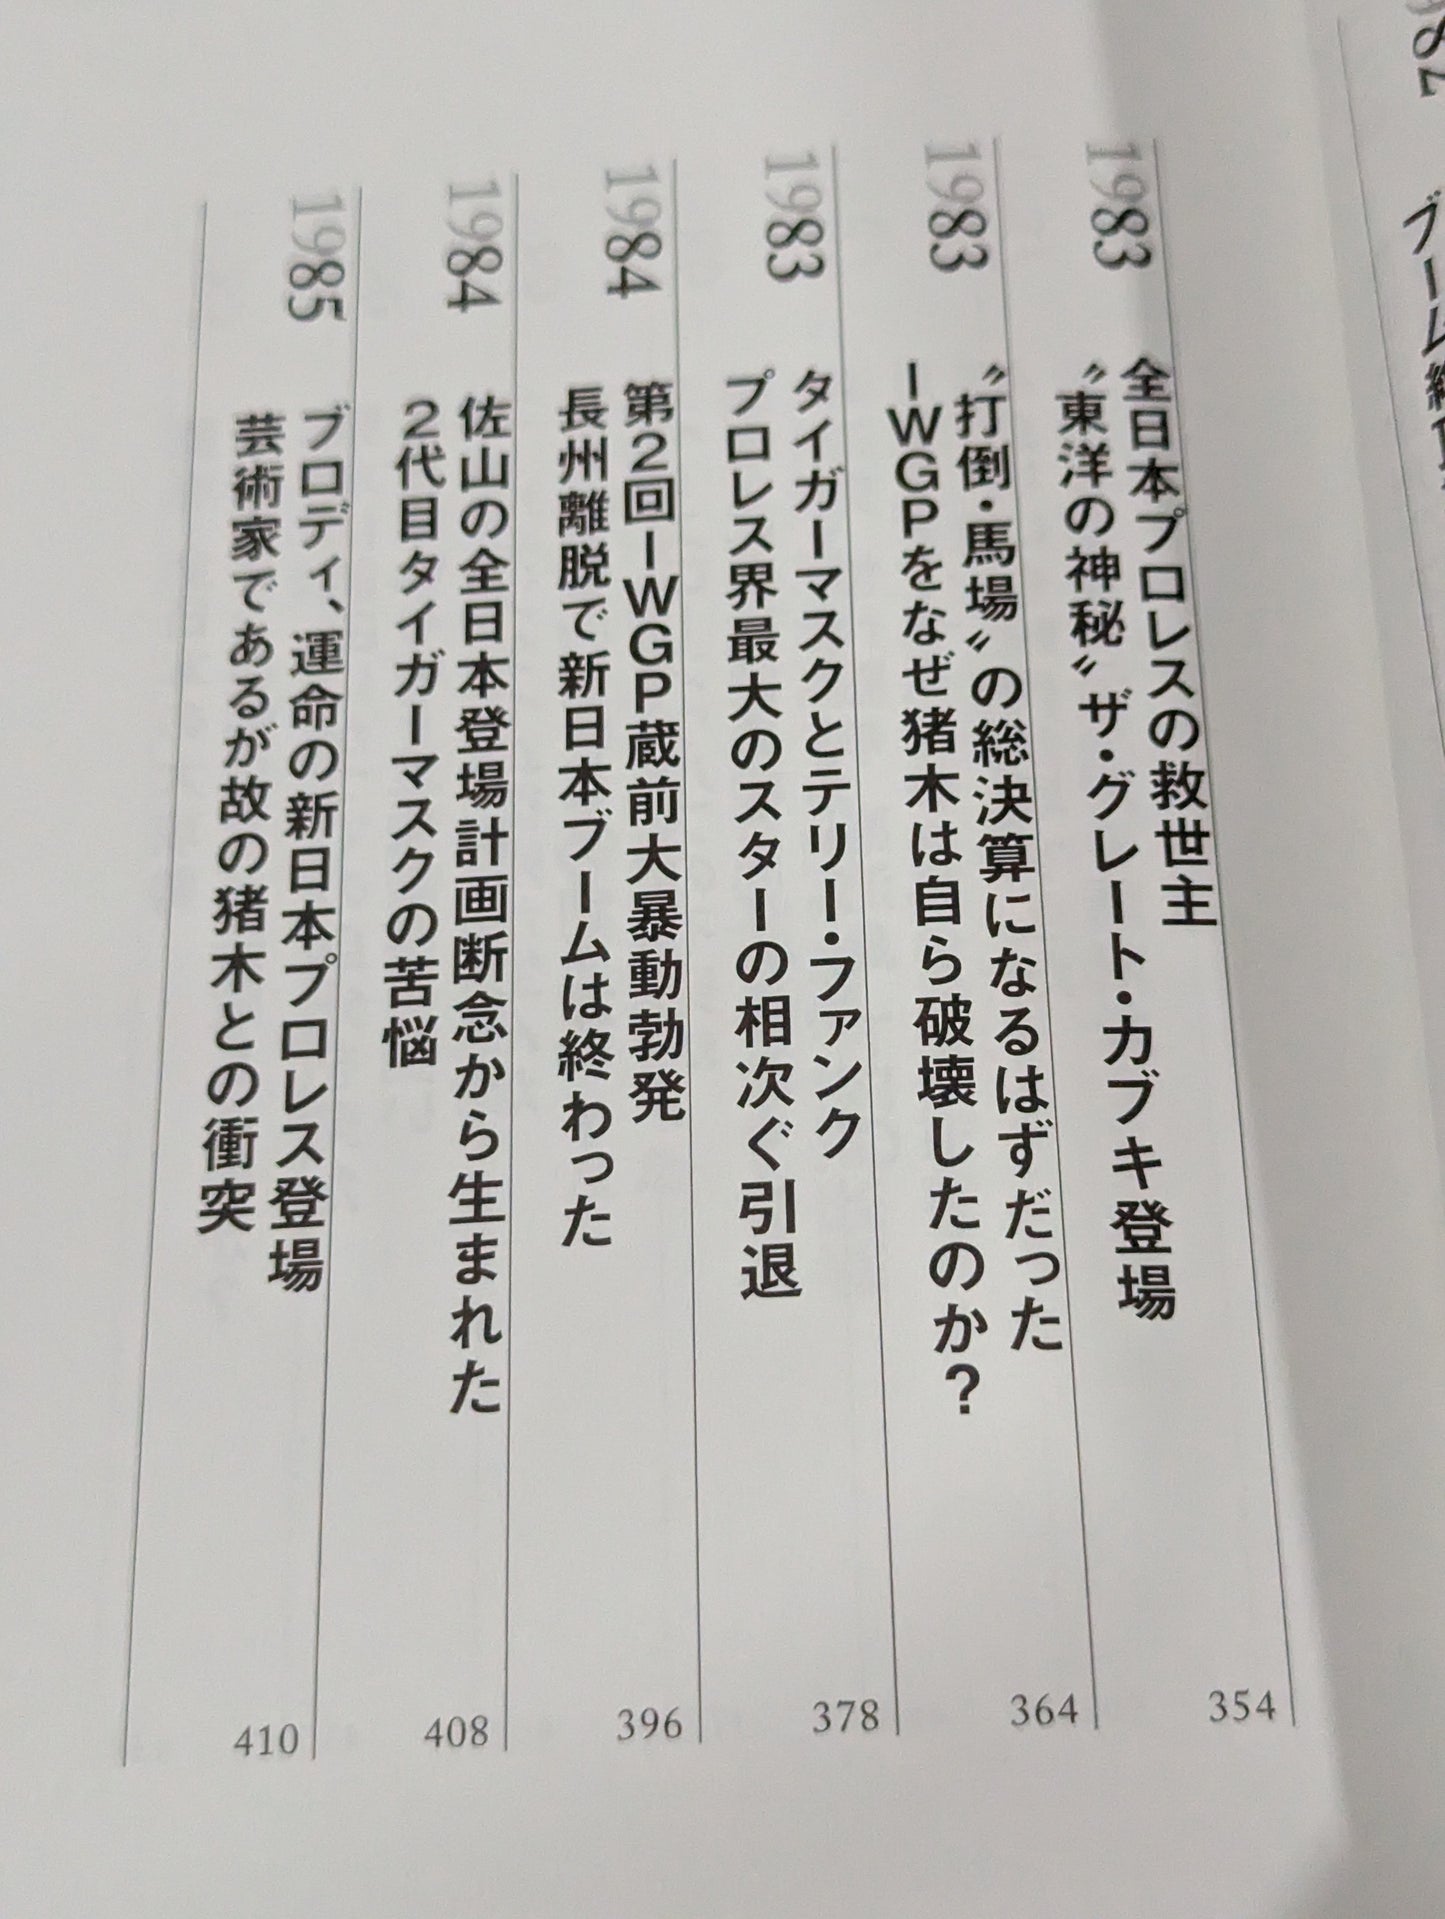 1983
全日本プロレスの救世主
〝東洋の神秘〟ザ・グレート・カブキ登場
354
1983
〝打倒・馬場〟の総決算になるはずだった
IWGPをなぜ猪木は自ら破壊したのか？
364
1983
タイガーマスクとテリー・ファンク
プロレス界最大のスターの相次ぐ引退
378
1984
第2回IWGP蔵前大暴動勃発
長州離脱で新日本ブームは終わった
396
1984
佐山の全日本登場計画断念から生まれた
2代目タイガーマスクの苦悩
408
1985
ブロディ、運命の新日本プロレス登場
芸術家であるが故の猪木との衝突
410